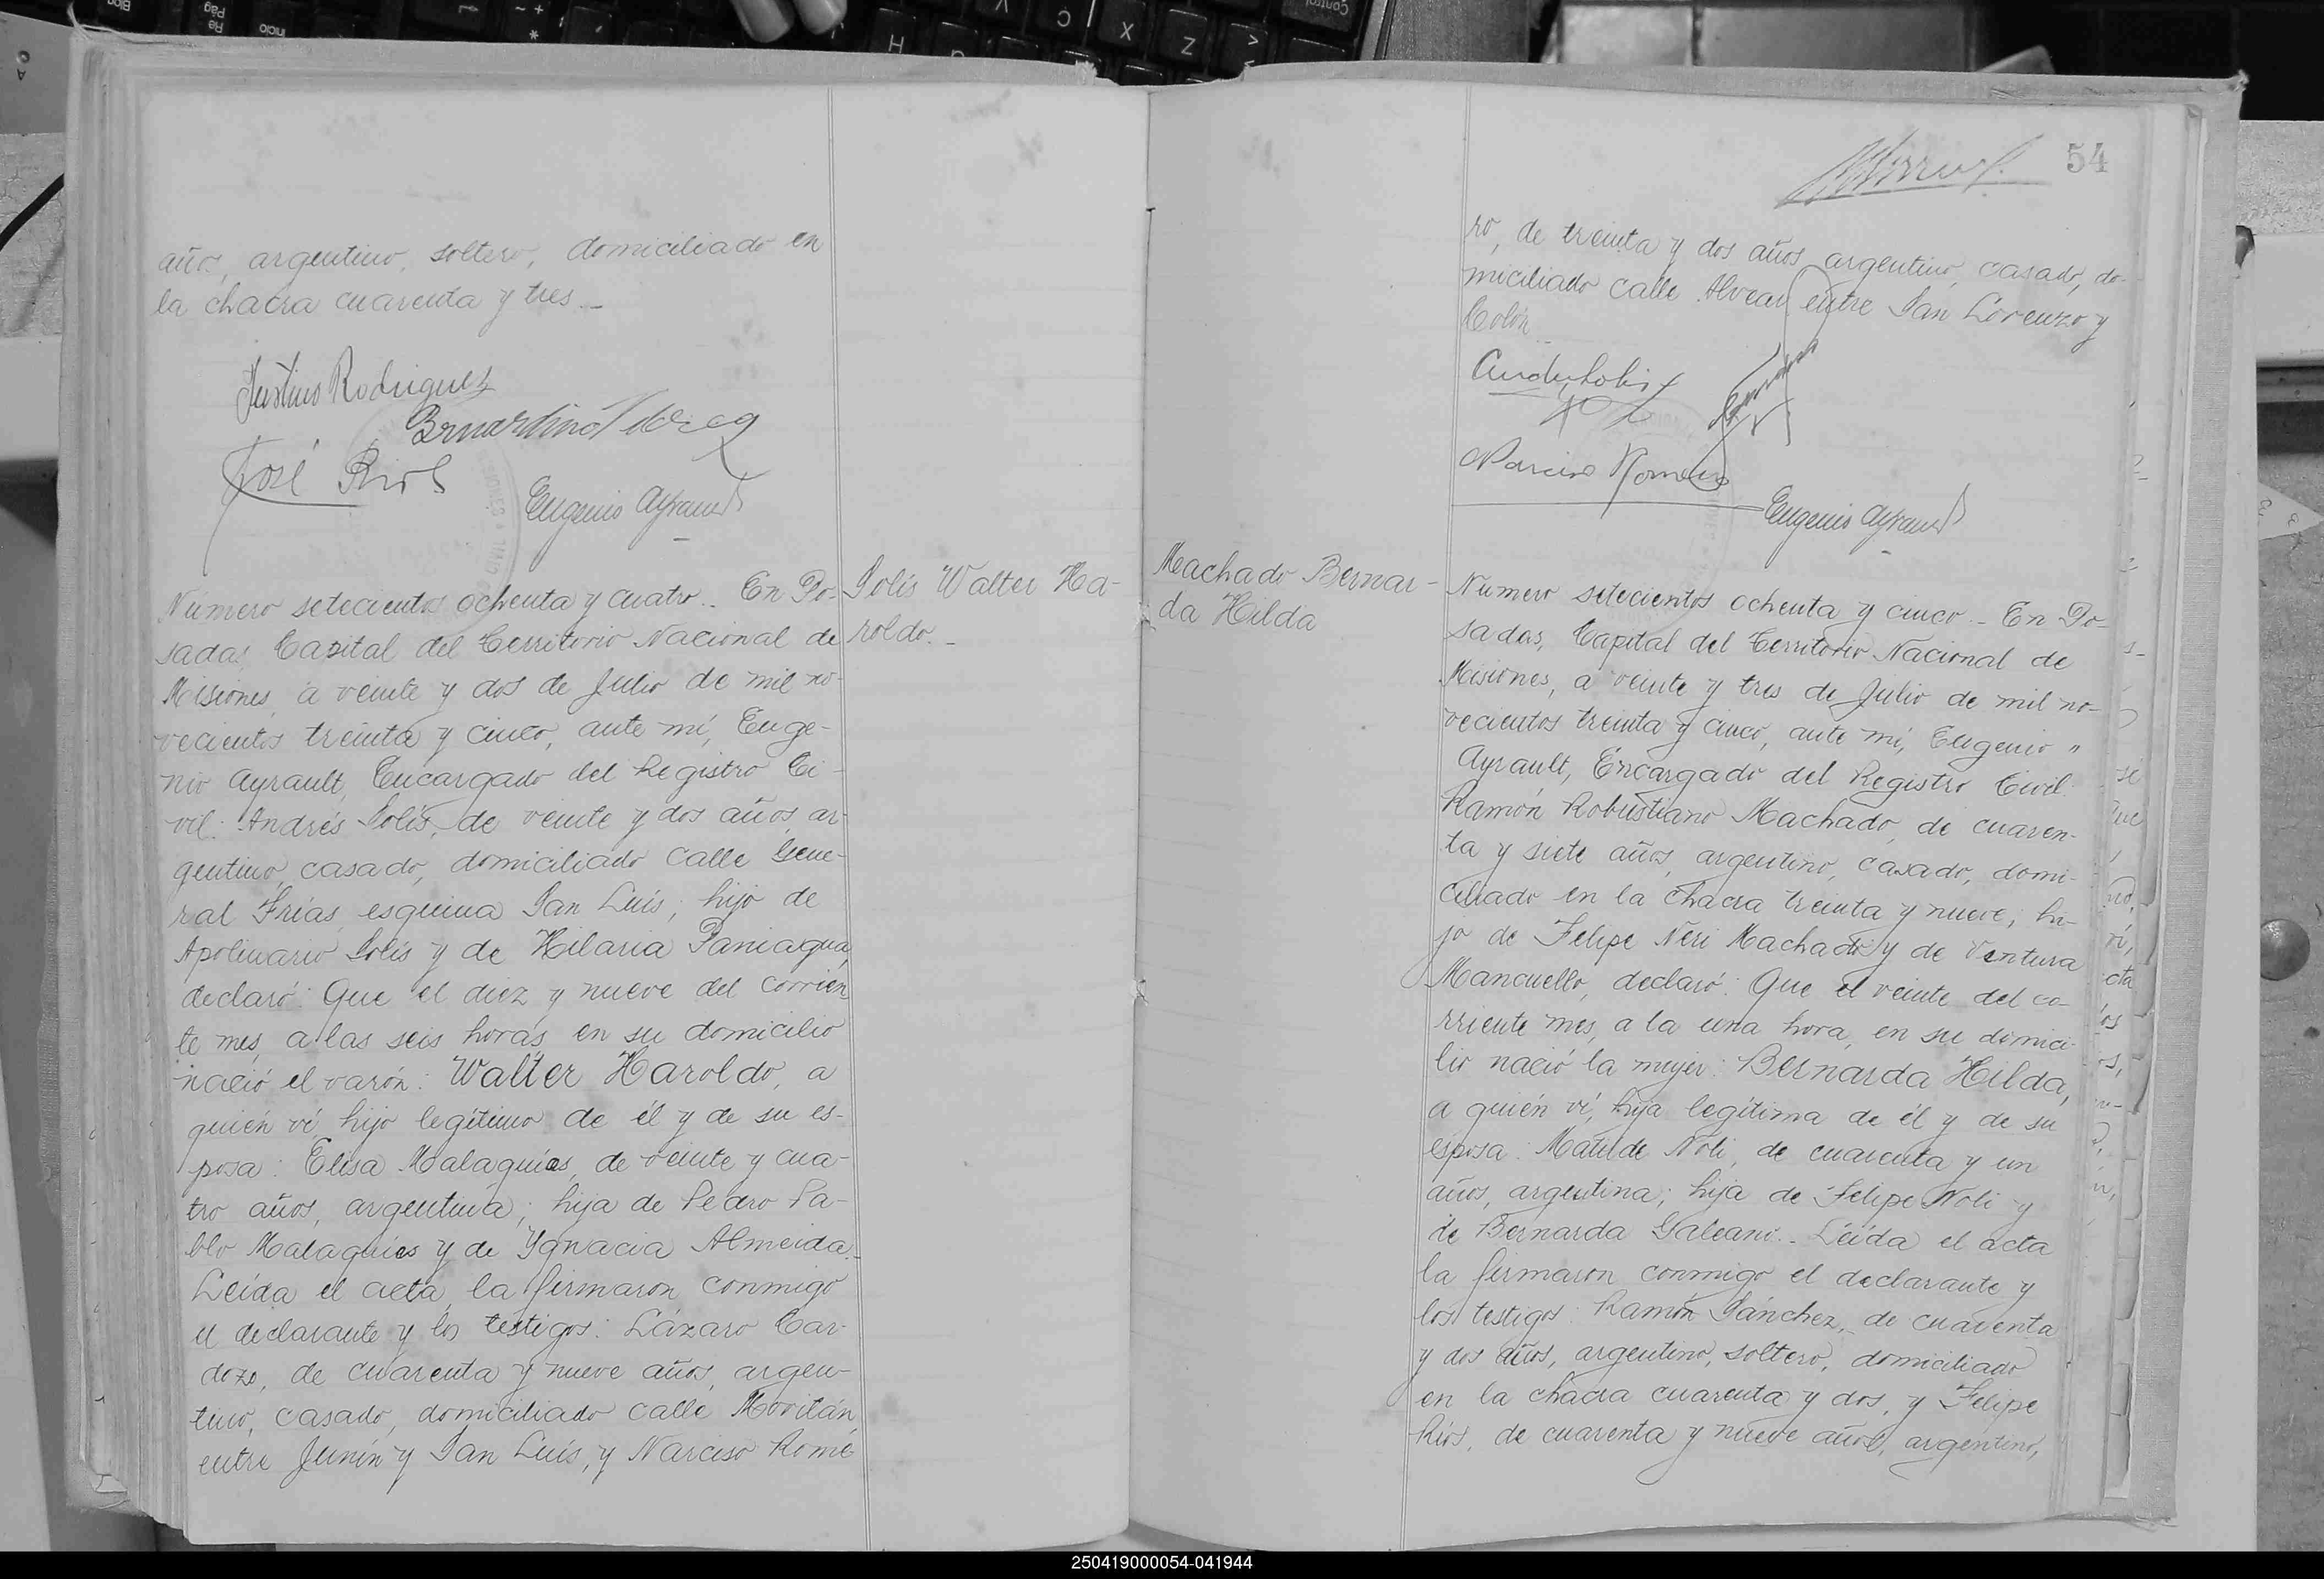 años, argentino, soltero, domiciliado en
la chacra cuarenta y tres._
Justino Rodriguez
José Rios
Eugenio Ayrault
Número setecientos ochenta y cuatro._ En Po-
sadas, Capital del Territorio Nacional de
Misiones, a veinte y dos de Julio de mil no-
vecientos treinta y cinco, ante mí, Euge-
nio Ayrault, Encargado del Registro Ci-
vil: Andrés Solís, de veinte y dos años, ar-
gentino, casado, domiciliado calle Gene-
ral Frías esquina San Luis; hijo de
Apolinario Solís y de Hilaria Paniagua,
declaró: Que el diez y nueve del corrien
te mes, a las seis horas en su domicilio
nació el varón: Walter Haroldo, a
quién ví, hijo legítimo de él y de su es-
posa: Elisa Malaquias, de veinte y cua-
tro años, argentina; hija de Pedro Pa-
blo Malaquies y de Ygnacia Almeida._
Leída el acta, la firmaron conmigo
el declarante y los testigos: Lázaro Car-
dozo, de cuarenta y nueve años, argen-
tino, casado, domiciliado calle Moritán,
entre Junín y San Luis, y Narciso Rome
Solís Walter Ha-
roldo._
54
ro, de treinta y dos años, argentino, casado, do-
miciliado calle Alvear entre San Lorenzo y
Colón
Narciso Romero
Eugenio Ayrault
Machado Bernar-
da Hilda
Número setecientos ochenta y cinco._ En Po-
sadas, Capital del Territorio Nacional de
Misiones, a veinte y tres de Julio de mil no-
vecientos treinta y cinco, ante mí, Eugenio "
Ayrault, Encargado del Registro Civil:
Ramón Robustiano Machado, de cuaren-
ta y siete años, argentino, casado, domi-
ciliado en la chacra treinta y nueve; hi-
jo de Felipe Neri Machado y de Ventura
Mancuello, declaró: Que el veinte del co-
rriente mes, a la una hora, en su domici-
lio nació la mujer: Bernarda Hilda,
a quién ví, hija legítima de él y de su
esposa: Matilde Noli, de cuarenta y un
años, argentina; hija de Felipe Noli y
de Bernarda Galeano._ Leída el acta
la firmaron conmigo el declarante y
los testigos: Ramón Sánchez, de cuarenta
y dos años, argentino, soltero, domiciliado
en la chacra cuarenta y dos, y Felipe
Ríos, de cuarenta y nueve años, argentino,
250419000054-041944